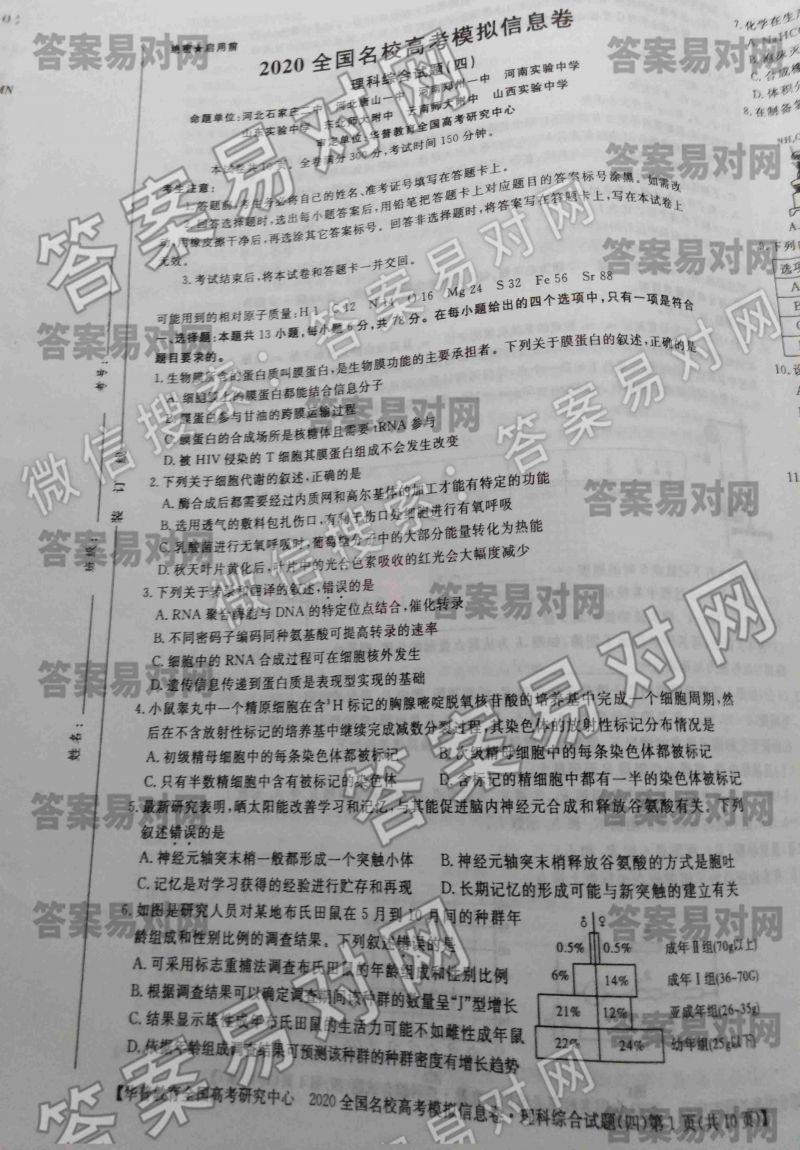 绝密★启用前
2020全国名校高考模拟信息卷
理科综合试题(四)
命题单位:河北石家庄一中 河北唐山一中 河南郑州一中 河南实验中学
山东实验中学 东北师大附中 云南师大附中 山西实验中学
审定单位:华普教育全国高考研究中心
本试卷共10页。全卷满分300分,考试时间150分钟。
考生注意:
1.答题前,考生务必将自己的姓名、准考证号填写在答题卡上。
2.回答选择题时,选出每小题答案后,用铅笔把答题卡上对应题目的答案标号涂黑。如需改
动,用橡皮擦干净后,再选涂其它答案标号。回答非选择题时,将答案写在答题卡上,写在本试卷上
无效。
3.考试结束后,将本试卷和答题卡一并交回。
可能用到的相对原子质量:H 1 C 12 N 14 O 16 Mg 24 S 32 Fe 56 Sr 88
一、选择题:本题共13小题,每小题6分,共78分。在每小题给出的四个选项中,只有一项是符合
题目要求的。
1.生物膜所含的蛋白质叫膜蛋白,是生物膜功能的主要承担者。下列关于膜蛋白的叙述,正确的是
A.细胞膜上的膜蛋白都能结合信息分子
B.膜蛋白参与甘油的跨膜运输过程
C.膜蛋白的合成场所是核糖体且需要tRNA参与
D.被HIV侵染的T细胞其膜蛋白组成不会发生改变
2.下列关于细胞代谢的叙述,正确的是
A.酶合成后都需要经过内质网和高尔基体的加工才能有特定的功能
B.选用透气的敷料包扎伤口,有利于伤口处细胞进行有氧呼吸
C.乳酸菌进行无氧呼吸时,葡萄糖分子中的大部分能量转化为热能
D.秋天叶片黄化后,叶片中的光合色素吸收的红光会大幅度减少
3.下列关于转录和翻译的叙述,错误的是
A.RNA聚合酶能与DNA的特定位点结合,催化转录
B.不同密码子编码同种氨基酸可提高转录的速率
C.细胞中的RNA合成过程可在细胞核外发生
D.遗传信息传递到蛋白质是表现型实现的基础
4.小鼠睾丸中一个精原细胞在含³H标记的胸腺嘧啶脱氧核苷酸的培养基中完成一个细胞周期,然
后在不含放射性标记的培养基中继续完成减数分裂过程,其染色体的放射性标记分布情况是
A.初级精母细胞中的每条染色体都被标记 B.次级精母细胞中的每条染色体都被标记
C.只有半数精细胞中含有被标记的染色体 D.含标记的精细胞中都有一半的染色体被标记
5.最新研究表明,晒太阳能改善学习和记忆,与其能促进脑内神经元合成和释放谷氨酸有关。下列
叙述错误的是
A.神经元轴突末梢一般都形成一个突触小体 B.神经元轴突末梢释放谷氨酸的方式是胞吐
C.记忆是对学习获得的经验进行贮存和再现 D.长期记忆的形成可能与新突触的建立有关
6.如图是研究人员对某地布氏田鼠在5月到10月间的种群年
龄组成和性别比例的调查结果。下列叙述错误的是
A.可采用标志重捕法调查布氏田鼠的年龄组成和性别比例
B.根据调查结果可以确定调查期间该种群的数量呈"J"型增长
C.结果显示雄性成年布氏田鼠的生活力可能不如雌性成年鼠
D.依据年龄组成调查结果可预测该种群的种群密度有增长趋势
♂ ♀
0.5% 0.5% 成年Ⅱ组(70g以上)
6% 14% 成年Ⅰ组(36-70G)
21% 12% 亚成年组(26-35g)
22% 24% 幼年组(25g以下)
【华普教育全国高考研究中心 2020全国名校高考模拟信息卷·理科综合试题(四)第1页(共10页)】
考号:
班级:
姓名:
装订线
7.化学在生
A.NaHC
C.合成
D.体积分
8.在制备
9.下列
选项
A
B
10.设
11
答案易对网
微信搜索:答案易对网